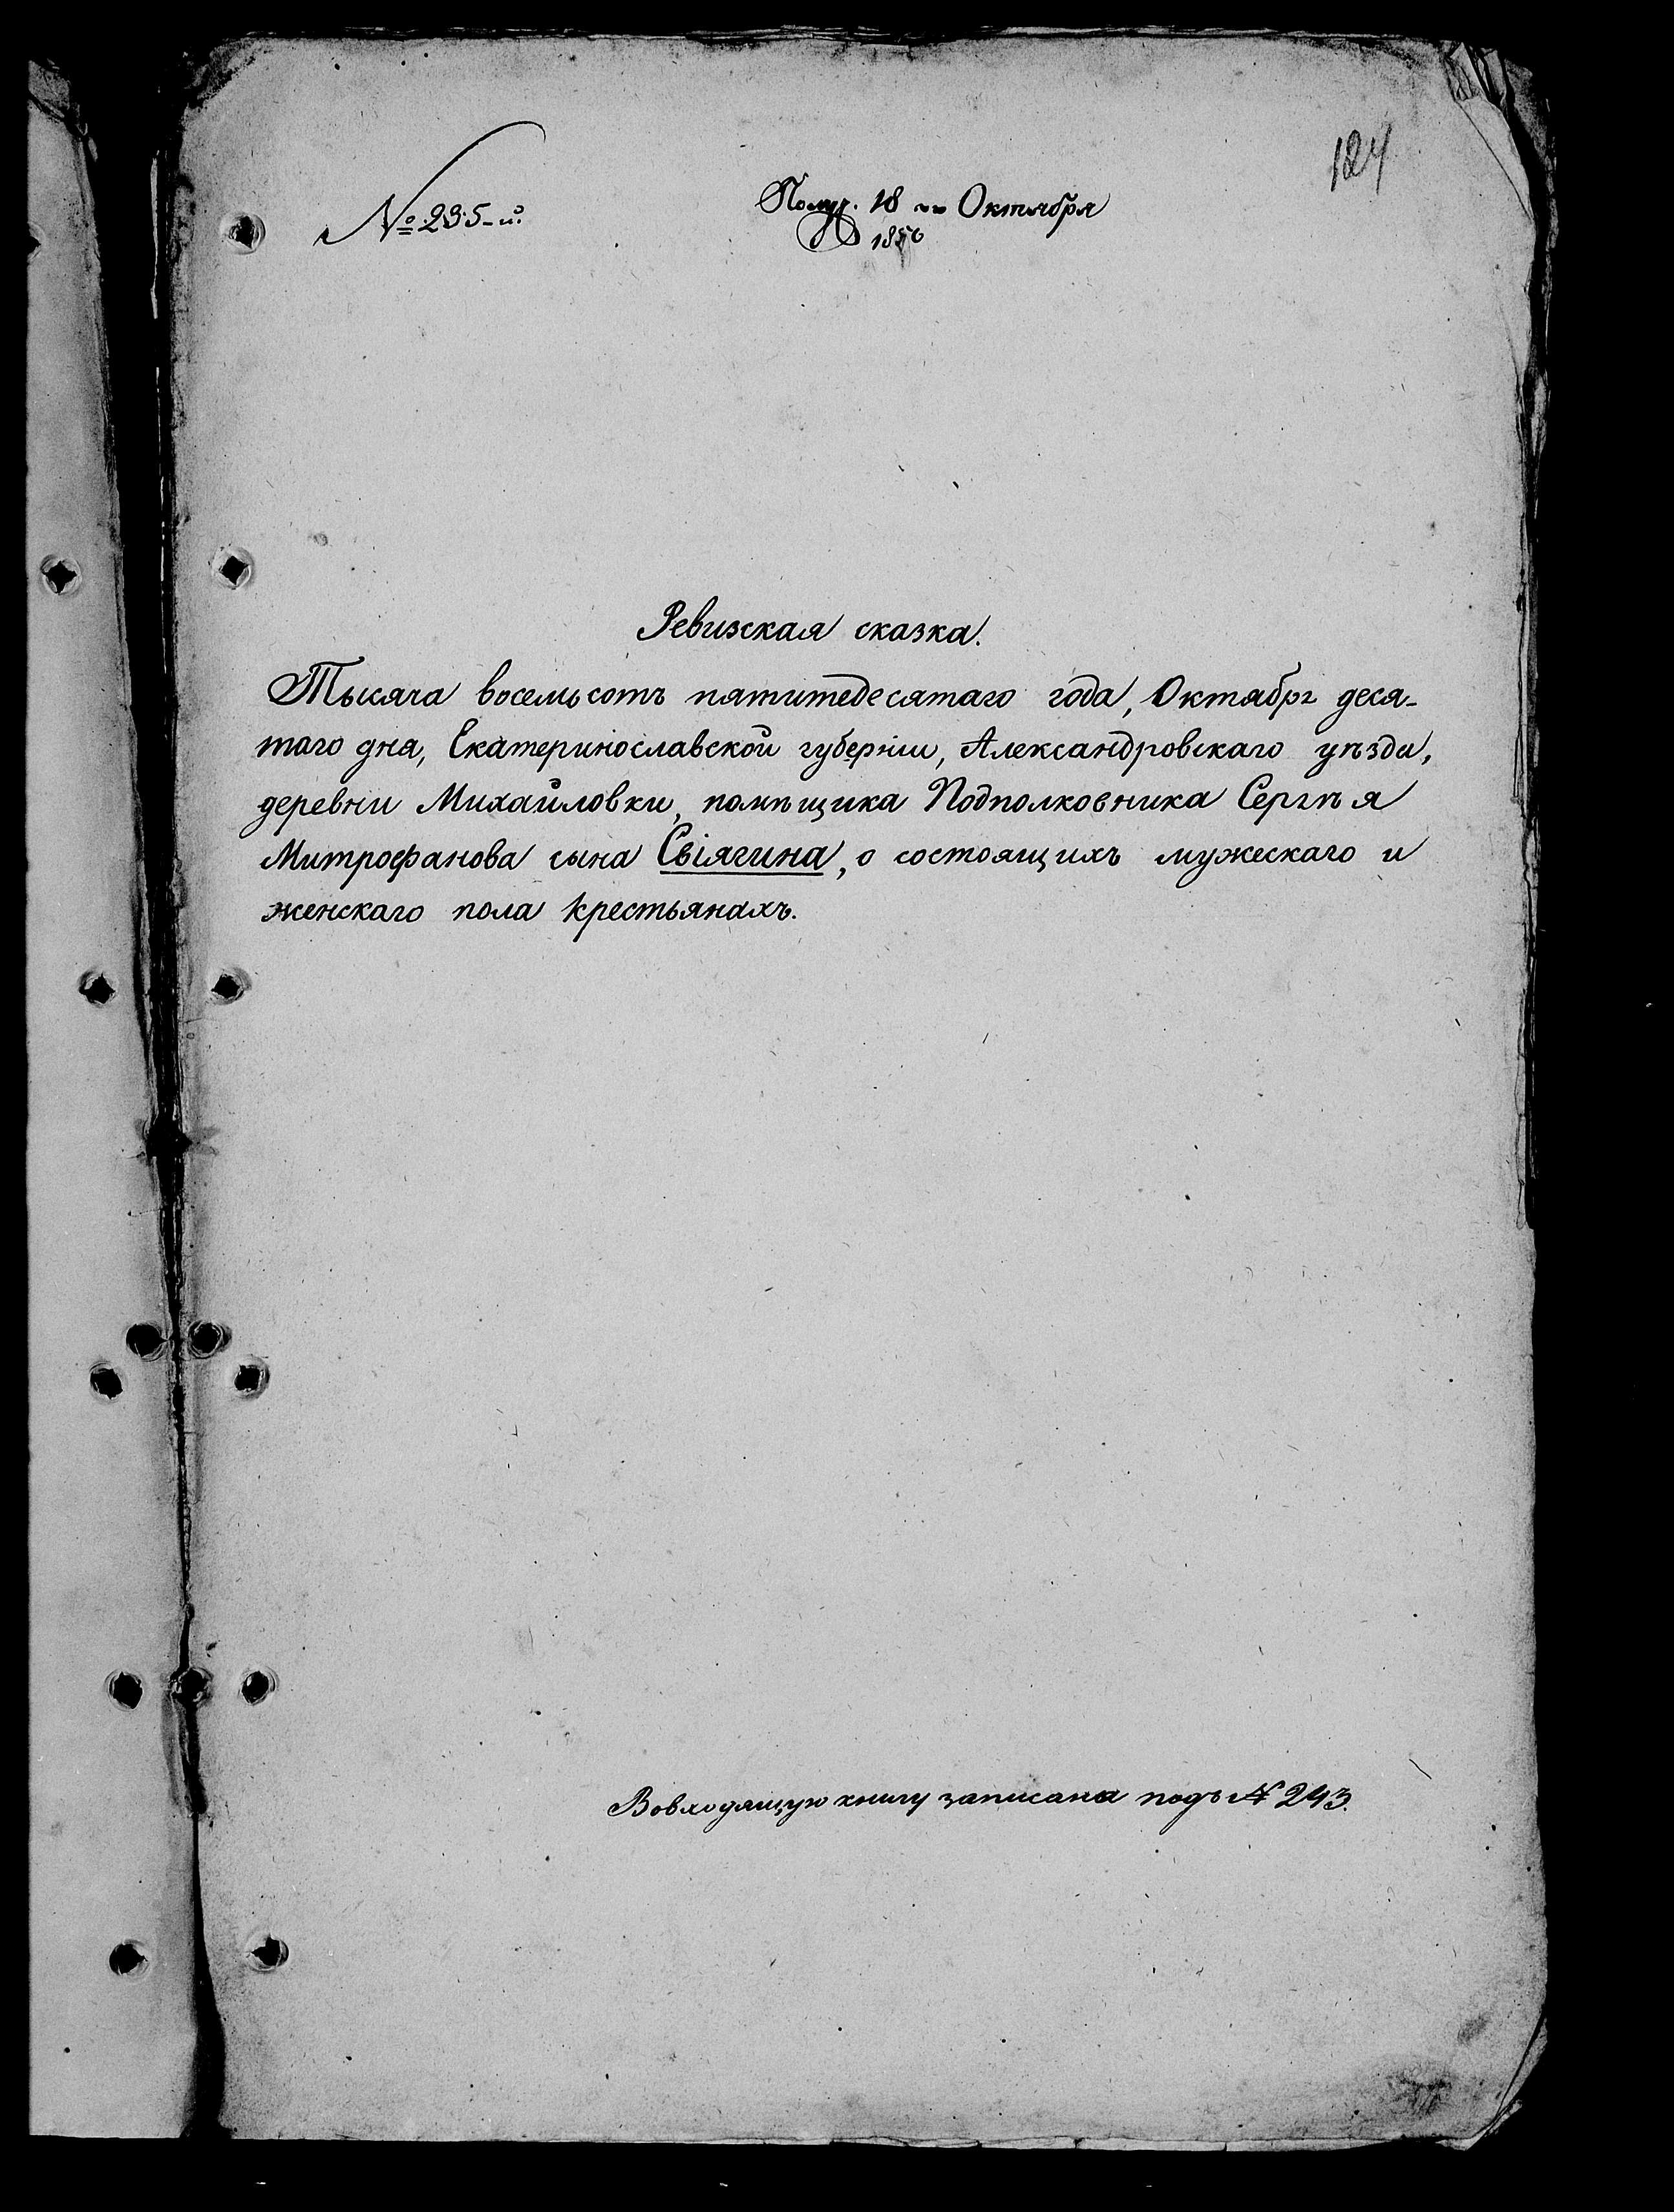 124
№ 235-й.
Получ. 18 го Октября
1850
Ревизская сказка.
Тысяча восемьсотъ пятитедесятаго года, Октября деся-
таго дня, Екатеринославской губерніи, Александровскаго уѣзда,
деревни Михайловки, помѣщика Подполковника Сергѣя
Митрофанова сына Свіягина, о состоящихъ мужескаго и
женскаго пола крестьянахъ.
Вовходящую книгу записана подъ № 243.